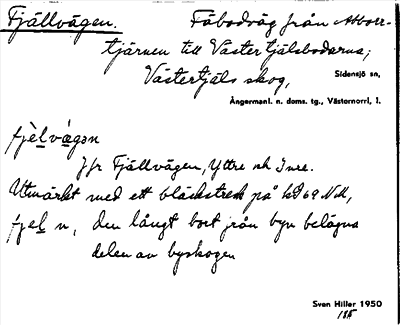 Fjällvägen. Fäbodväg från Abborr-
tjärnen till Västertjälsbodarna;
Västertjäls skog,
Sidensjö sn,
Ångermanl. n. doms. tg., Västernorrl. l.
fjèlvä̀gən
Jfr Fjällvägen, Yttre och Inre.
Utmärkt med ett bläckstreck på
fjel n, den långt bort från byn belägna
delen av byskogen
Sven Hiller 1950